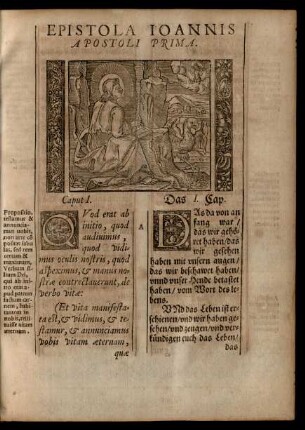 EPISTOLA IOANNIS
APOSTOLI PRIMA.
Caput I.
QVod erat ab
initio, quod
audiuimus,
quod vidi-
mus oculis nostris, quod
aspeximus, & manus no-
stræ contrectauerunt, de
verbo vitæ:
(Et vita manifesta-
ta est, & vidimus, & te-
stamur, & annunciamus
vobis vitam æternam,
quæ
A
Das I. Cap.
DAs da von an-
fang war/
das wir gehö-
ret haben/das
wir gesehen
haben mit vnsern augen/
das wir beschawet haben/
vnnd vnser Hende betastet
haben/ vom Wort des le-
bens.
VNd das Leben ist er-
schienen/vnd wir haben ge-
sehen/vnd zeugen/vnd ver-
kündigen euch das Leben/
das